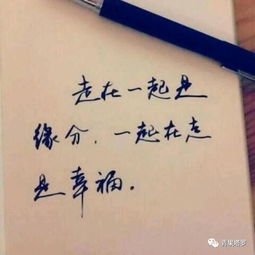 走在一起是
缘分，一起在走
是幸福。
青果塔罗